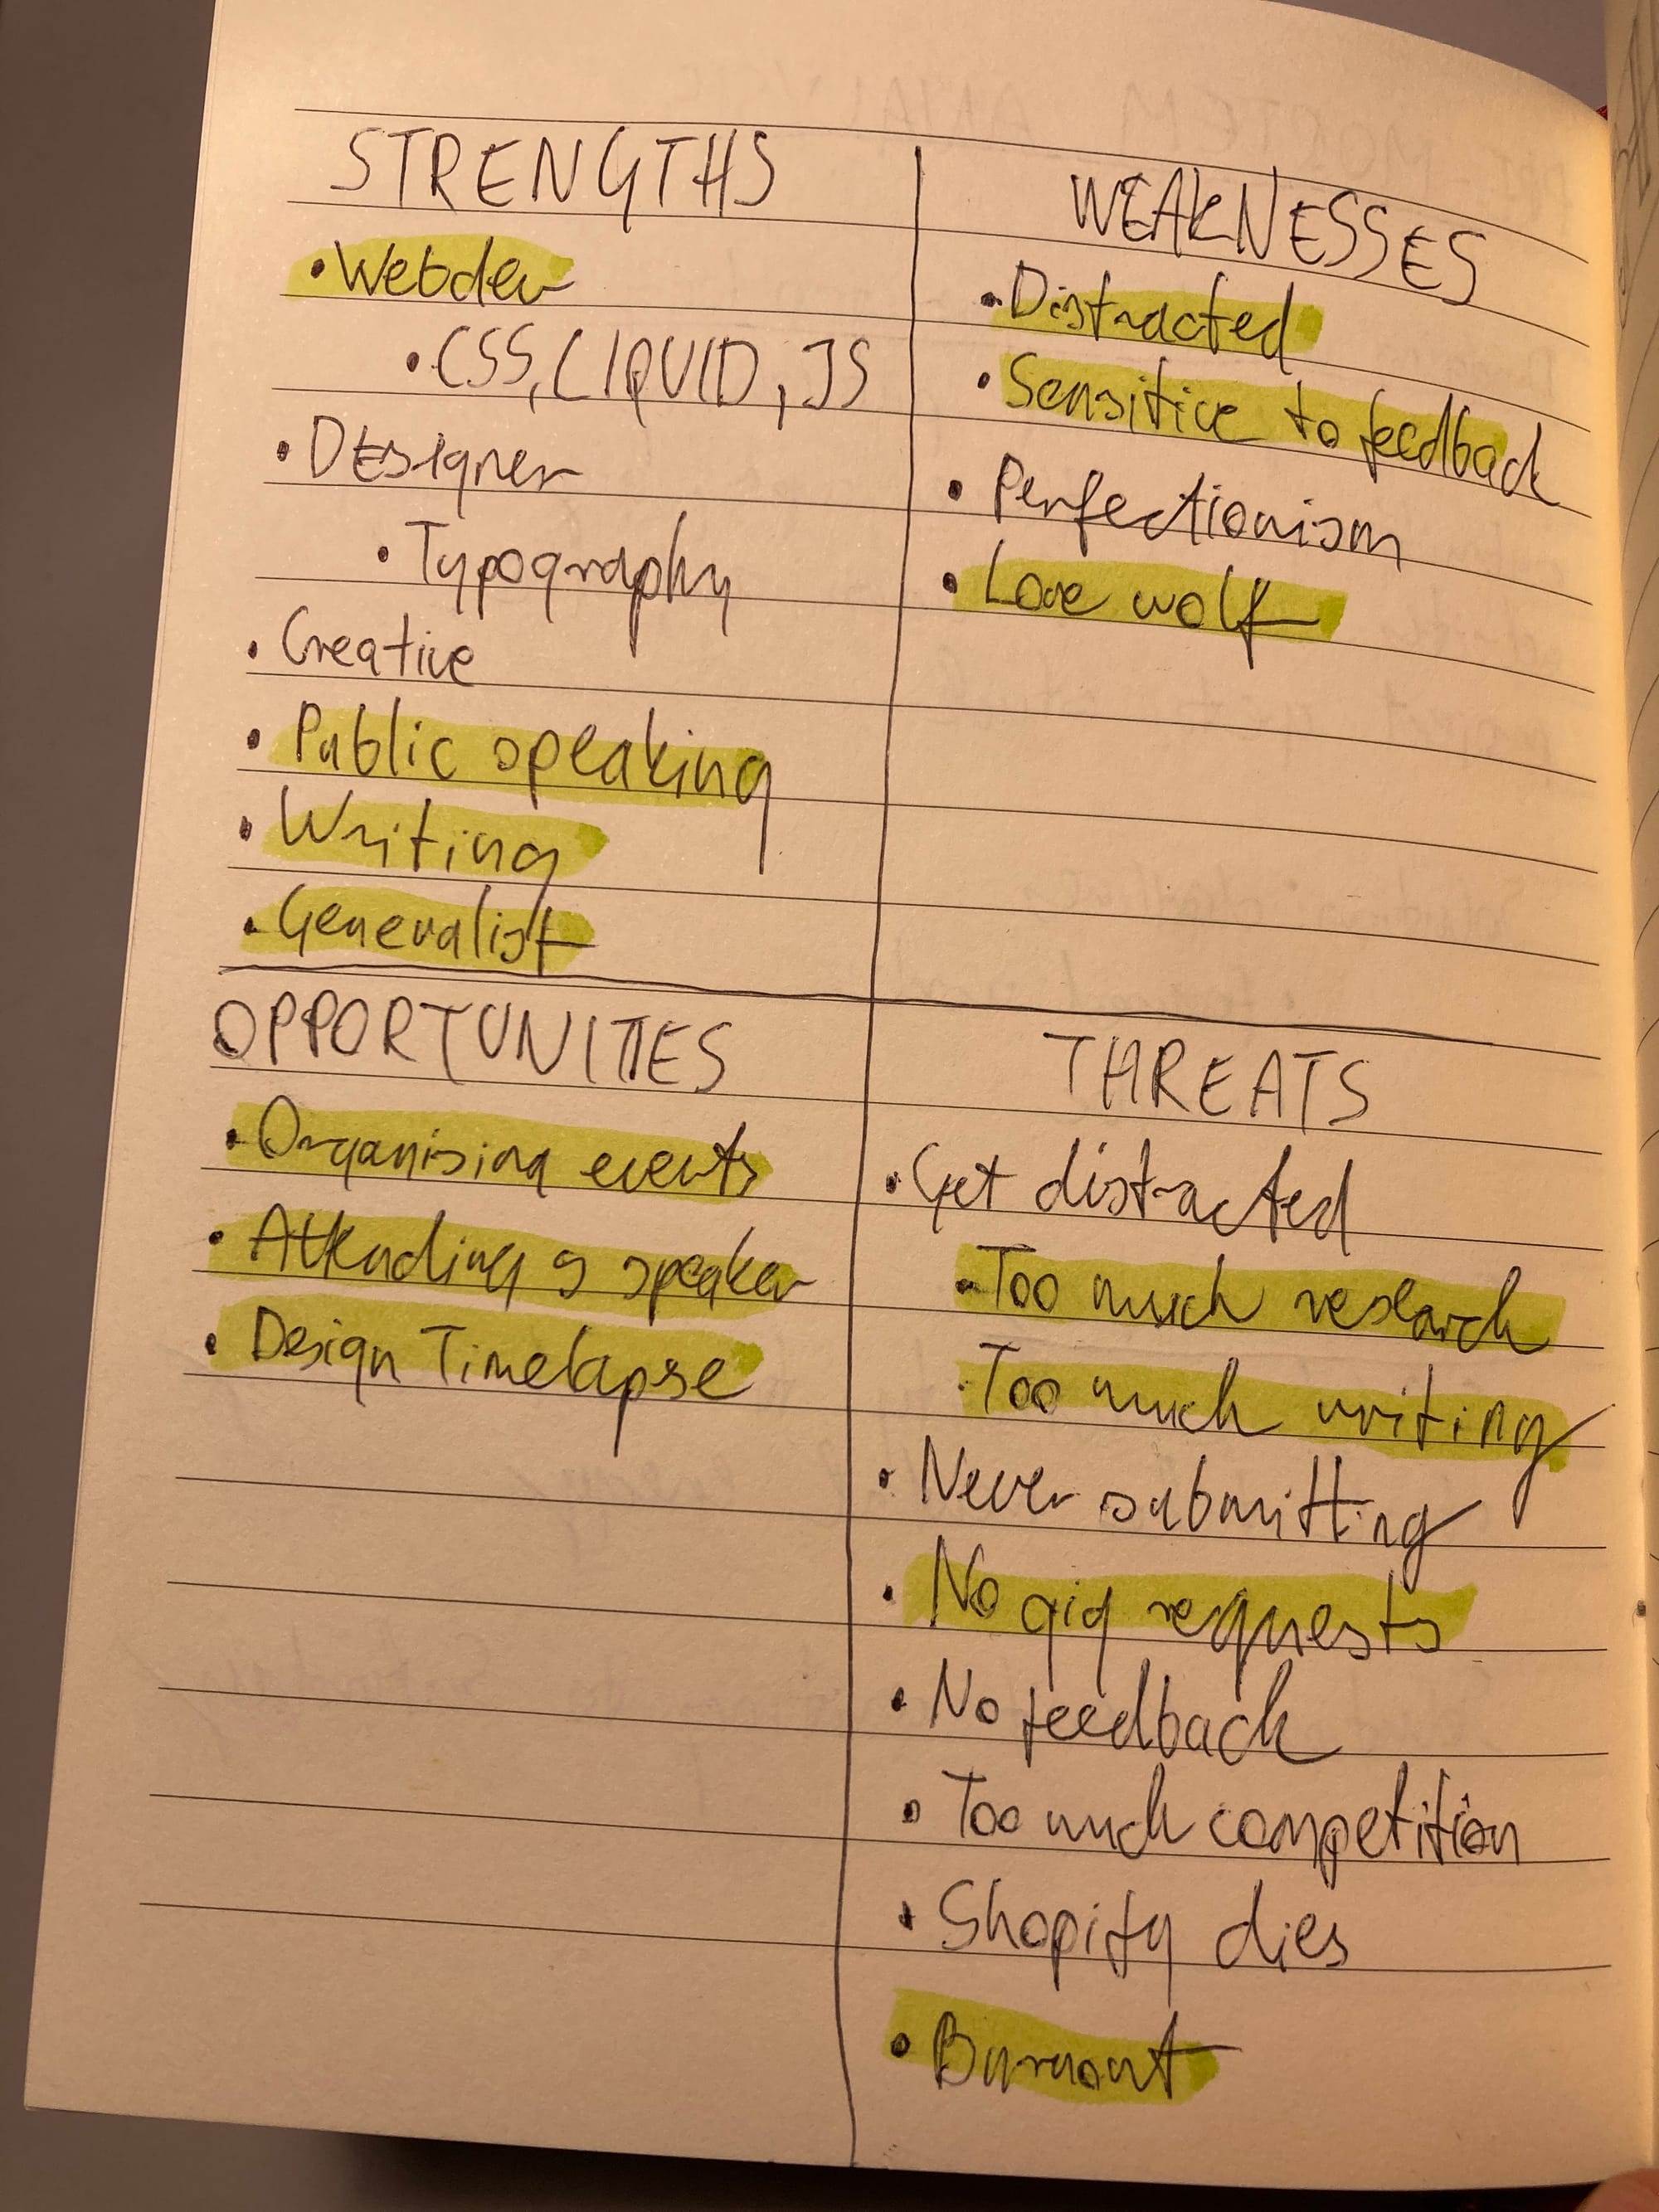 STRENGTHS
• Webdev
• CSS, LIQUID, JS
• Designer
• Typography
• Creative
• Public speaking
• Writing
• Generalist
WEAKNESSES
• Distracted
• Sensitive to feedback
• Perfectionism
• Lone wolf
OPPORTUNITIES
• Organising events
• Attending & speaker
• Design Timelapse
THREATS
• Get distracted
• Too much research
• Too much writing
• Never submitting
• No gig requests
• No feedback
• Too much competition
• Shopify dies
• Burnout